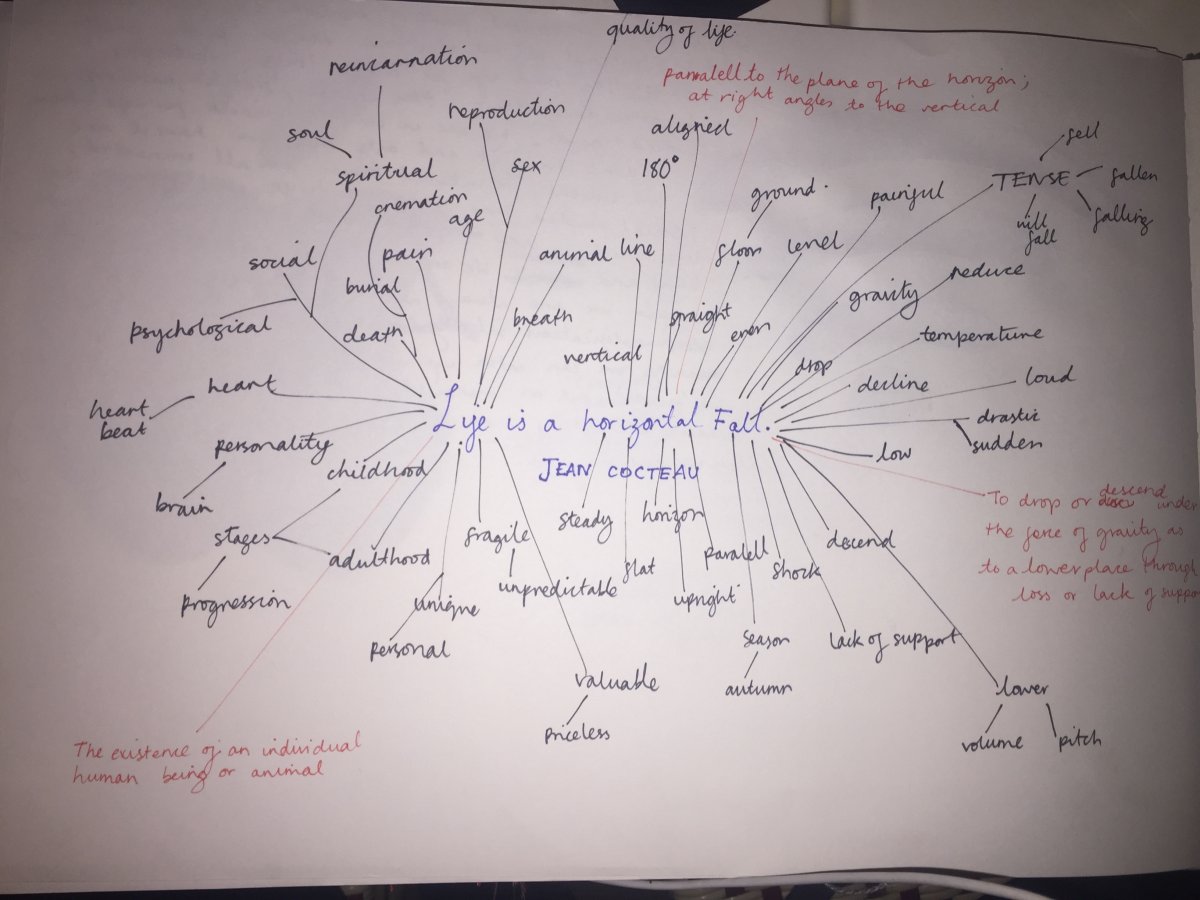 quality of life.
reincarnation
paralell to the plane of the horizon;
at right angles to the vertical
reproduction
soul
aligned
fell
spiritual
sex
180°
TENSE
fallen
cremation
ground.
painful
age
will
fall
falling
social
pain
animal
line
floor
level
burial
gravity
reduce
psychological
death
breath
straight
even
temperature
vertical
drop
heart
decline
loud
heart
beat
Life is a horizontal Fall.
drastic
personality
sudden
childhood
JEAN COCTEAU
low
brain
steady
horizon
To drop or descend under
stages
fragile
descend
the force of gravity as
adulthood
paralell
flat
shock
to a lower place through
unpredictable
progression
unique
upright
loss or lack of suppo
personal
season
lack of support
valuable
autumn
lower
priceless
volume
pitch
The existence of an individual
human being or animal